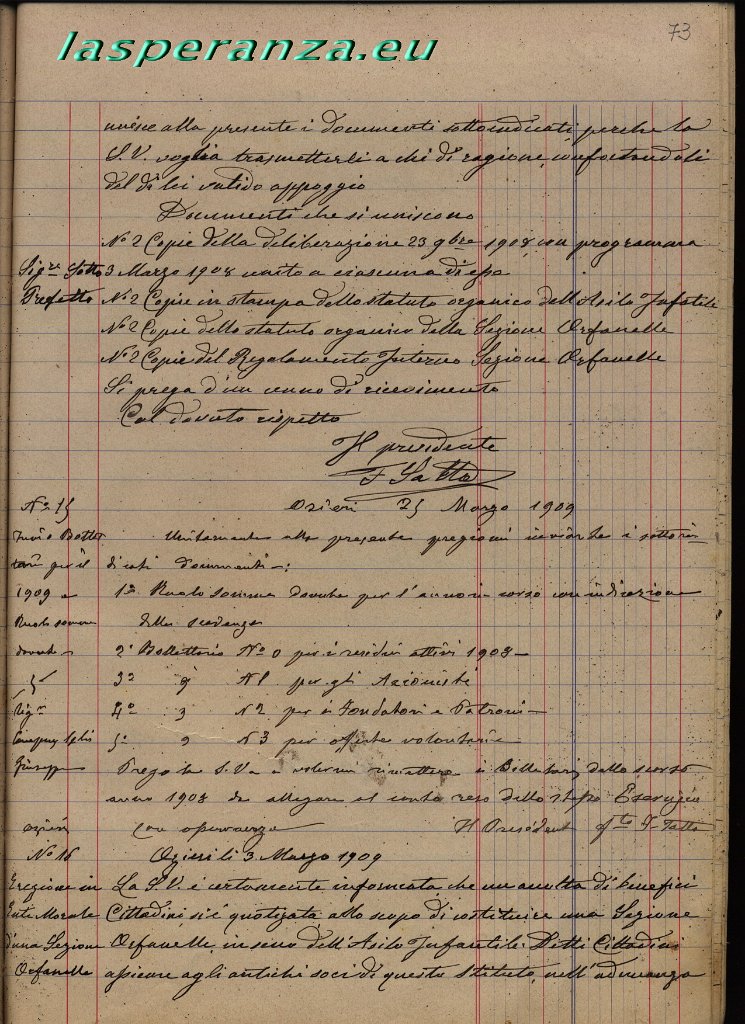 73
lasperanza.eu
unisce alla presente i documenti sottoindicati, perche la
S. V. voglia trasmetterli a chi di ragione, confortandoli
del di lei valido appoggio
Documenti che si uniscono
N° 2 Copie della deliberazione 23 9bre 1908, con programma
3 Marzo 1908 unito a ciascuna di esse
Sigr Sotto
Prefetto
N° 2 Copie in stampa dello statuto organico dell'Asilo Infantile
N° 2 Copie dello statuto organico della Sezione Orfanelle
N° 2 Copie del Regolamento Interno Sezione Orfanelle
Si prega d'un cenno di ricevimento
Col dovuto rispetto
Il presidente
F Satta
N° 15
Ozieri 25 Marzo 1909
Invio Bollet
tari per il
1909 e
Ruolo somme
dovute
Unitamente alla presente pregiomi inviarle i sottoin-
dicati documenti:
1° Ruolo somme dovute per l'anno in corso con indicazione
della scadenza
2° Bollettario N° 0 per i residui attivi 1908
3° N 1 per gli Azionisti
4° N 2 per i Fondatori e Patroni
5° N 3 per offerte volontarie
Sigr
Giuseppe
ozieri
Prego la S. Va a volermi rimettere i Bollettari dello scorso
anno 1908 da allegare al conto reso dello stesso Esercizio
con osservanza Il Presidente fto F. Satta
N° 16
Ozieri li 3 Marzo 1909
Erezione in
Ente Morale
d'una Sezione
Orfanelle
La S. V. è certamente informata, che un eletta di benefici
Cittadini si è quotizzata allo scopo di costituire una Sezione
Orfanelle, in seno dell'Asilo Infantile. Detti Cittadini
assieme agli antichi soci di questo Istituto, nell'adunanza